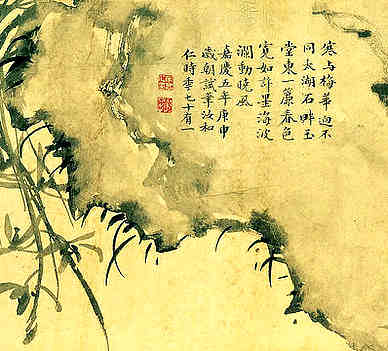 寒与梅華迥不
同太湖石畔玉
堂東一簾春色
寬如許墨海波
瀾動曉風
嘉慶五年庚申
歲朝試筆汝和
仁時秊七十有一